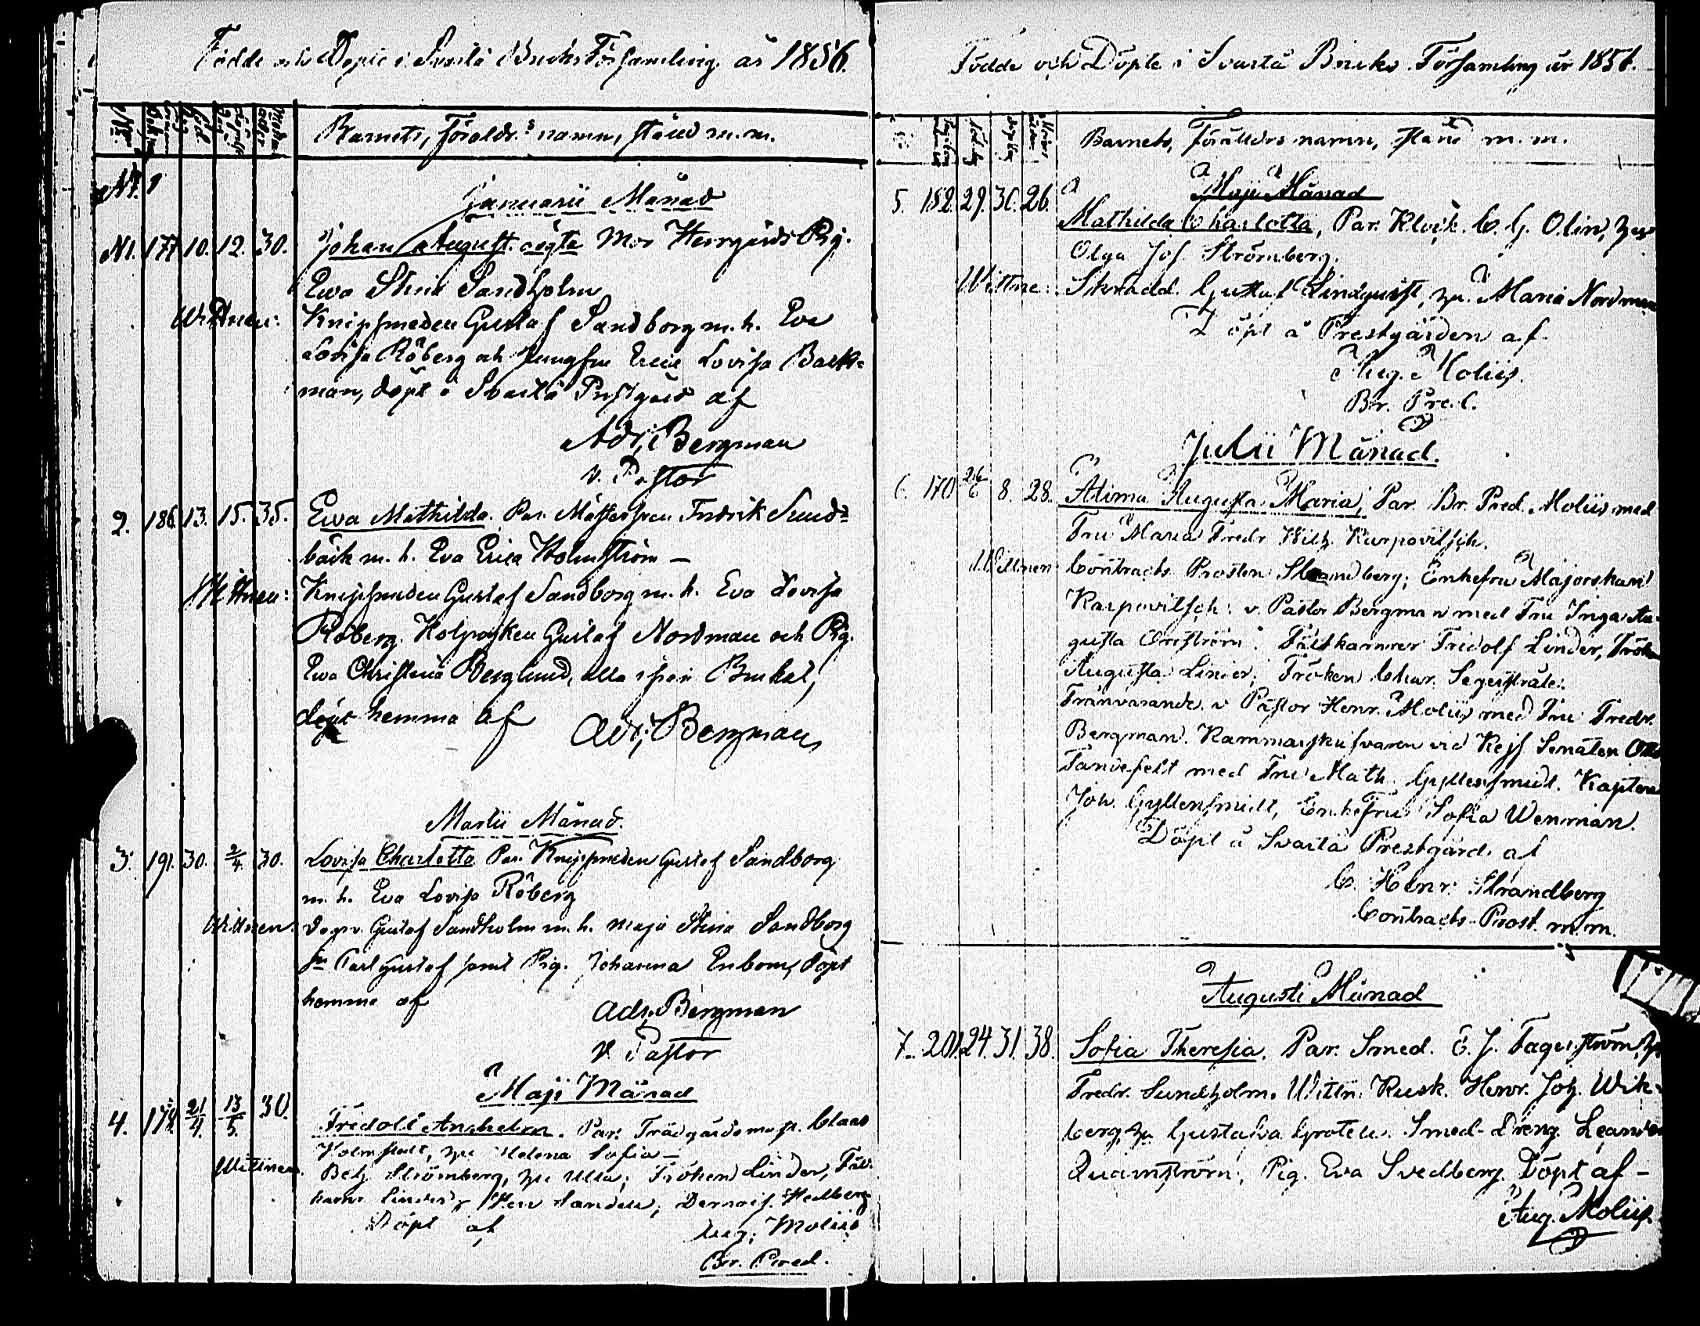 Födde och Döpte i Svartå Bruks Församling år 1856.
Barnets, föräldr:s namn, stånd m.m.
N:o 1
Januarii Månad
N1. 177 10. 12. 30. Johan August oägta Mor Herrgårds Pig.
Ewa Stina Sandholm
Wittnen: Knipsmeden Gustaf Sandborg m.h. Eva
Lovisa Röberg och Jungfru Lovisa Back-
man, döpt i Svartå Prestgård af
Adr. Bergman
V. Pastor
2. 186. 13. 15. 35. Ewa Mathilda. Par. Mästersven Fredrik Sund-
bäck m.h. Eva Erica Holmström —
Wittnen: Knipsmeden Gustaf Sandborg m.h. Eva Lovisa
Röberg. Kolpojken Gustaf Nordman och Pig.
Ewa Christina Berglund, alla ifrån Bruket,
döpt hemma af Adr. Bergman
Martii Månad.
3. 191. 30. 2/4. 30. Lovisa Charlotta Par. Knipsmeden Gustaf Sandborg
m.h. Eva Lovisa Röberg
Wittnen. Gustaf Sandholm m.h. Maja Stina Sandborg
Carl Gustaf samt Pig. Johanna Enbom, döpt
hemma af Adr. Bergman
V. Pastor
Maji Månad
4. 174. 21/4. 13/5. 30. Fridolf Anshelm. Par. Trädgårdsm. Claas
Holmstedt, Helena Sofia —
Wittnen. Strömberg, Ulla; Fröken Linder,
Linder, Sandell, Hedberg
Döpt af Aug. Moliis
Br. Pred.
Födde och Döpte i Svartå Bruks Församling år 1856.
Barnets, Föräldrs namn, stånd m.m.
Maji Månad
5. 182. 29. 30. 26. Mathilda Charlotta, Par. Klock. C. G. Olin,
Olga Jos. Strömberg.
Wittne: Skrädd. Gustaf Lindquist, Maria Nordman
Döpt å Prestgården af
Aug. Moliis.
Br. Pred.
Julii Månad.
6. 170 26/6 8. 28. Alima Augusta Maria, Par. Br. Pred. Moliis med
Fru Maria Fredr. Wilh. Karpovitsch.
Wittnen Contracts Prosten Strandberg; Enkefru Majorskan
Karpovitsch; v. Pastor Bergman med Fru Inga Au-
gusta Orrström. Fältkamrer Fridolf Linder, Fröken
Augusta Linder; Fröken Char. Segerstråle.
Frånvarande v. Pastor Henr. Moliis med Fru Fredr.
Bergman. Kammarskrifvaren vid Kejs. Senaten Otto
Tandefelt med Fru Math. Gyllensmidt. Kapten
Joh. Gyllensmidt, Enkefru Sofia Wenman.
Döpt å Svartå Prestgård, af
C. Henr. Strandberg
Contracts-Prost m.m.
Augusti Månad
7. 201. 24. 31. 38. Sofia Theresia. Par. Smed. E. J. Fagerström,
Fredr. Sundholm. Wittn: Kusk. Henr. Joh. Wik-
berg, Gustafva Grotell. Smed-Dreng Leander
Quarnström; Pig. Eva Svedberg. Döpt af —
Aug. Moliis